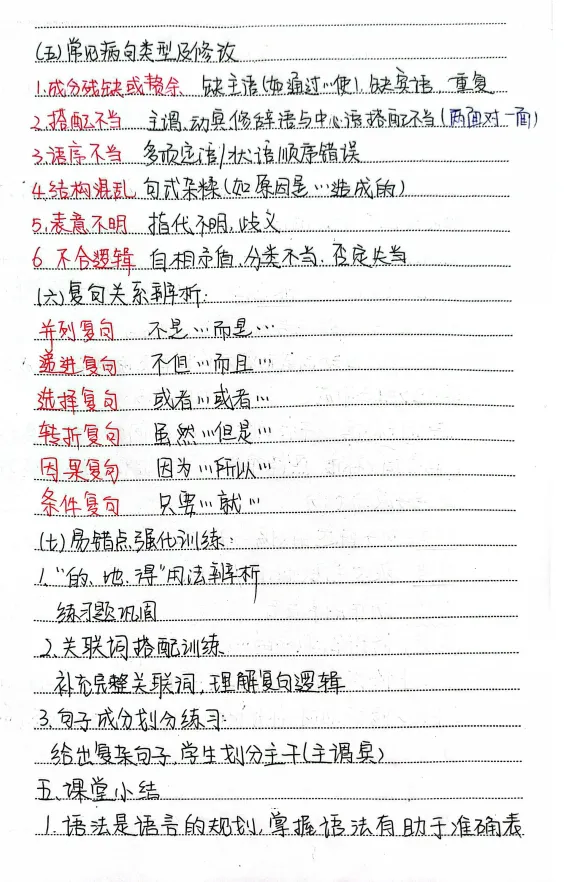 (五)常见病句类型及修改
1.成分残缺或赘余 缺主语(如通过…使).缺宾语 重复
2.搭配不当 主谓、动宾修辞语与中心语搭配不当(两面对一面)
3.语序不当 多项定语/状语顺序错误
4.结构混乱 句式杂糅(如原因是…造成的)
5.表意不明 指代不明,歧义
6.不合逻辑 自相矛盾、分类不当、否定失当
(六)复句关系辨析:
并列复句 不是…而是…
递进复句 不但…而且…
选择复句 或者…或者…
转折复句 虽然…但是…
因果复句 因为…所以…
条件复句 只要…就…
(七)易错点强化训练:
1."的、地、得"用法辨析
练习题巩固
2.关联词搭配训练
补充完整关联词,理解复句逻辑
3.句子成分划分练习:
给出复杂句子,学生划分主干(主谓宾)
五、课堂小结
1.语法是语言的规划,掌握语法有助于准确表